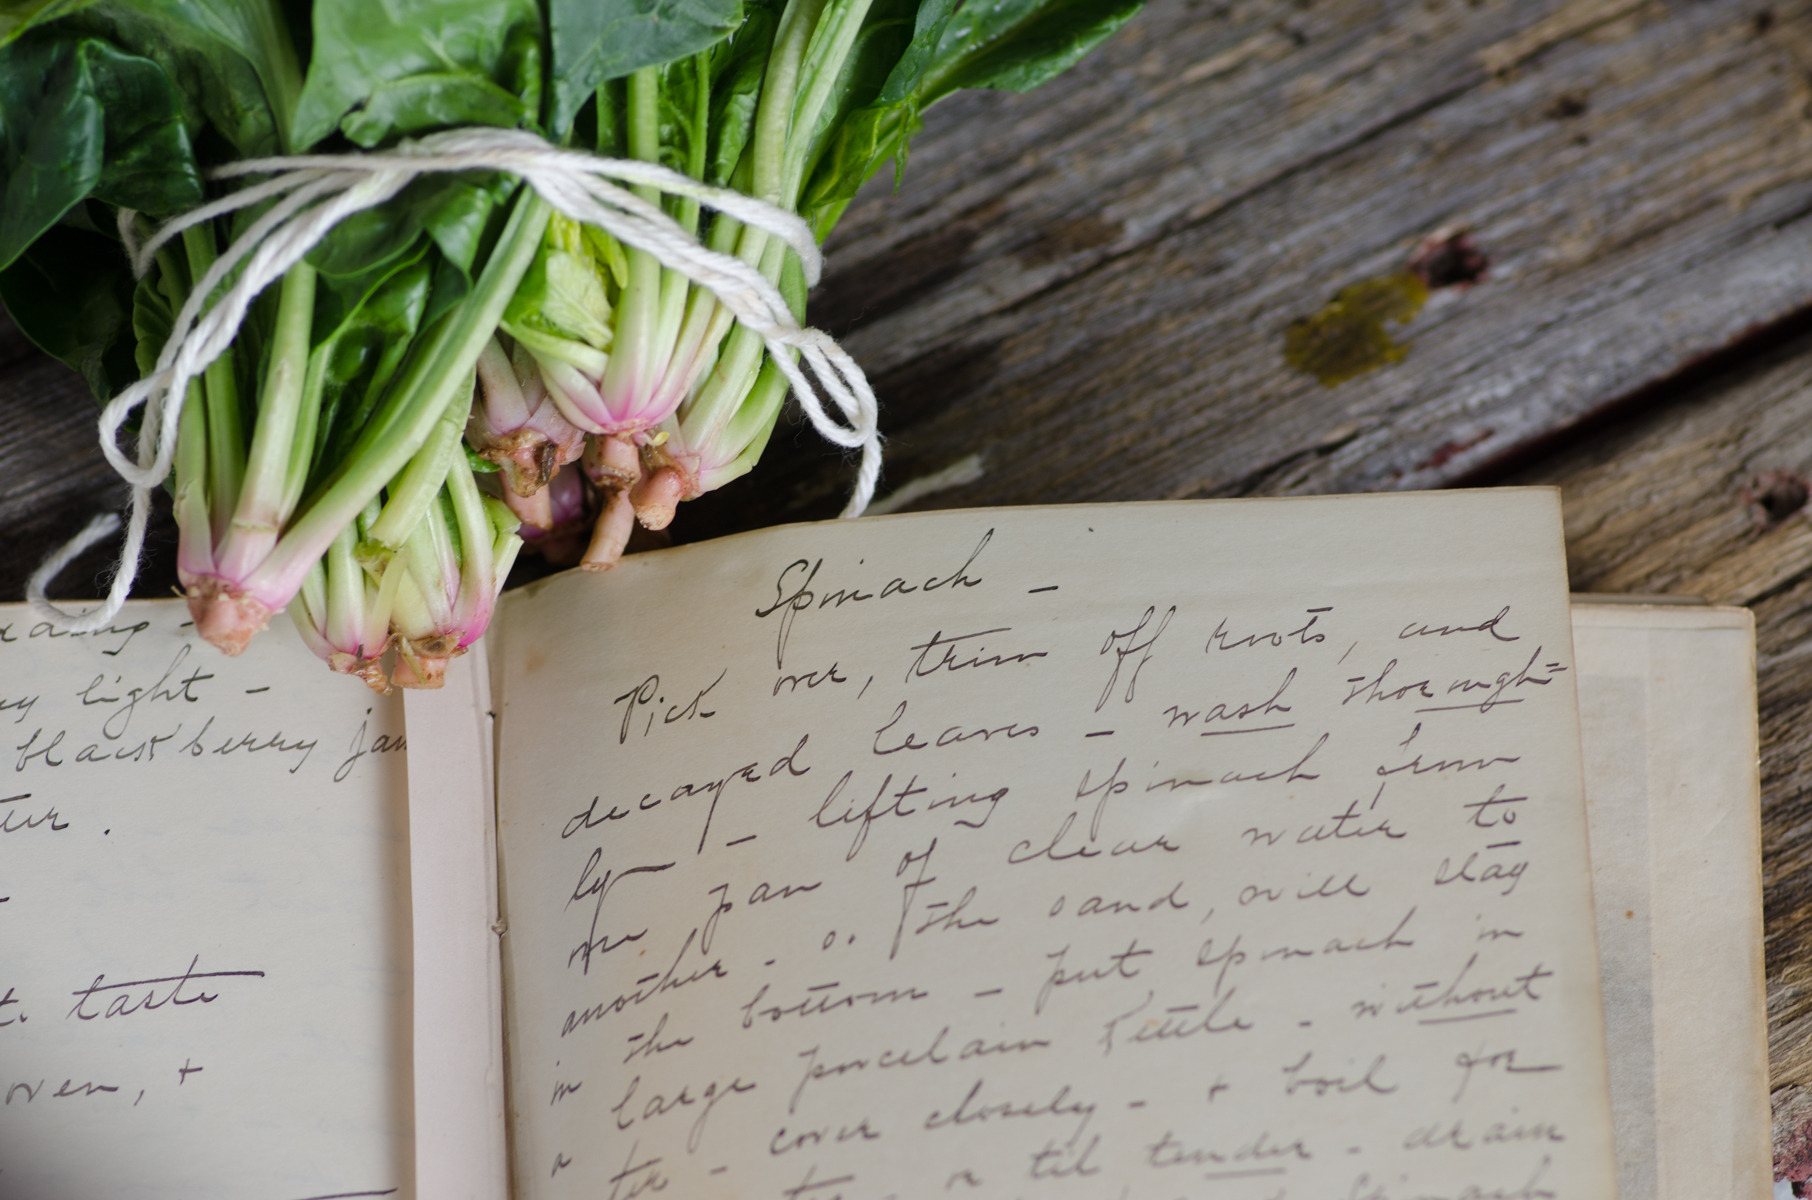 light -
blackberry jam
taste
oven, +
Spinach -
Pick over, trim off roots, and
decayed leaves - wash thorough=
ly - lifting spinach from
one pan of clear water to
another - so. the sand, will stay
in the bottom - put spinach in
a large porcelain kettle - without
cover closely - + boil for
or til tender - drain
spinach